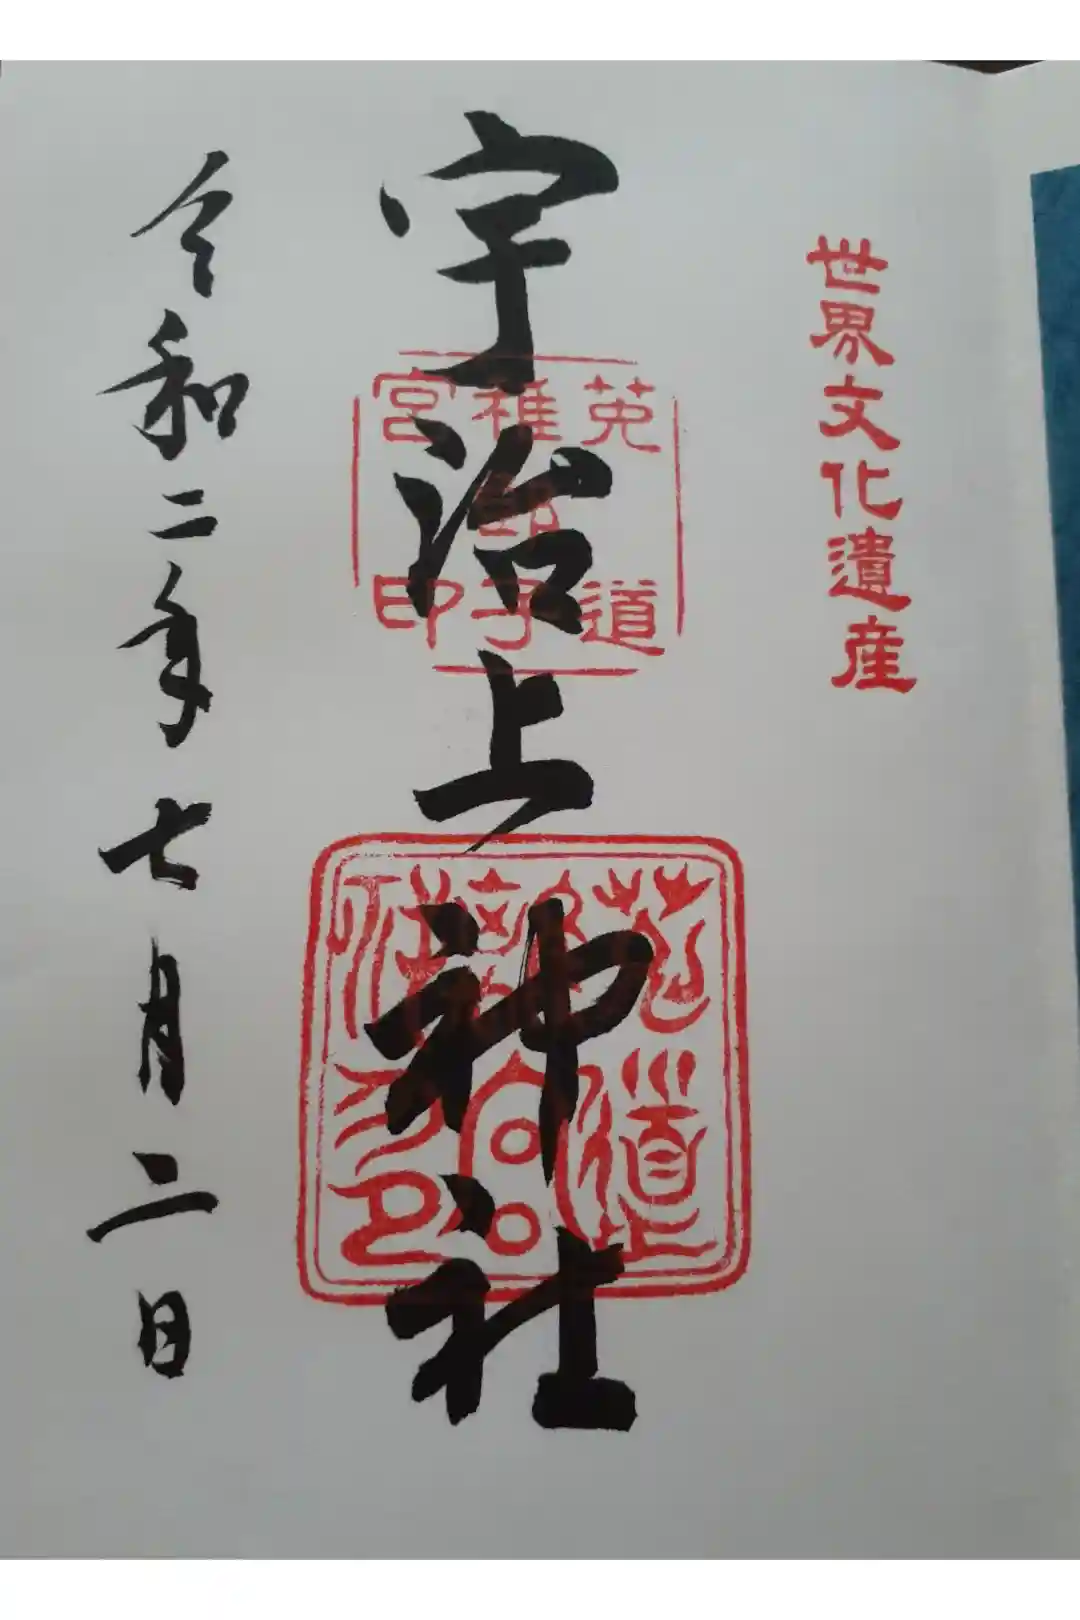 世界文化遺産
宇治上神社
菟道
稚郎子
宮印
令和二年七月二日